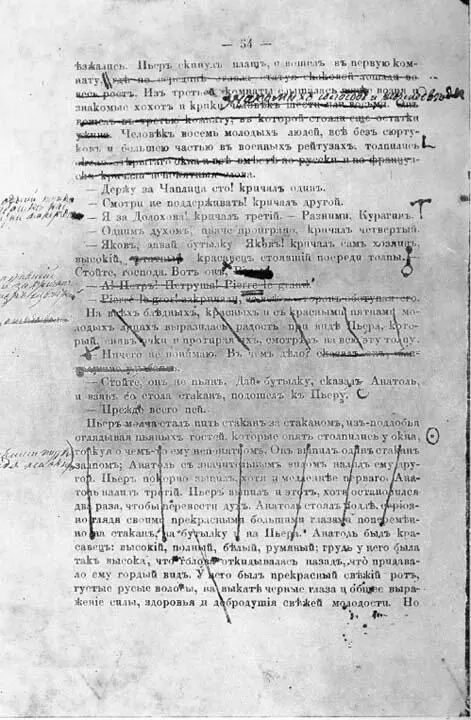 — 54 —
ѣзжались. Пьеръ скинулъ плащъ, и вошелъ въ первую ком-
нату, гдѣ по серединѣ стояла статуя скаковой лошади во
весь ростъ. Изъ третьей комнаты слышались возня
знакомые хохотъ и крики человѣкъ шести или восьми. Онъ
вошелъ въ третью комнату, въ которой стояли еще остатки
ужина. Человѣкъ восемь молодыхъ людей, всѣ безъ сюрту-
ковъ и большею частью въ военныхъ рейтузахъ, толпились
около открытаго окна и всѣ вмѣстѣ по русски и по француз-
ски кричали
— Держу за Чаплица сто! кричалъ одинъ.
— Смотри не поддерживать! кричалъ другой.
— Я за Долохова! кричалъ третій. — Разними, Курагинъ.
— Однимъ духомъ, иначе проиграно, кричалъ четвертый.
— Яковъ, давай бутылку Яковъ! кричалъ самъ хозяинъ,
высокій, красавецъ стоявшій посреди толпы.
— Стойте, господа. Вотъ онъ,
— А! Петръ! Петруша! Pierre le grand!
— Pierre le gros! закричали, со всѣхъ сторонъ обступая его.
На всѣхъ блѣдныхъ, красныхъ и съ красными пятнами мо-
лодыхъ лицахъ выразилась радость при видѣ Пьера, кото-
рый, снявъ очки и протирая ихъ, смотрѣлъ на всю эту толпу.
— Ничего не понимаю. Въ чемъ дѣло?
— Стойте, онъ не пьянъ. Дай бутылку, сказалъ Анатоль,
и взявъ со стола стаканъ, подошелъ къ Пьеру.
— Прежде всего пей.
Пьеръ молча сталъ пить стаканъ за стаканомъ, изъ-подлобья
оглядывая пьяныхъ гостей, которые опять столпились у окна,
толкуя о чемъ-то ему непонятномъ. Онъ выпилъ одинъ стаканъ
залпомъ; Анатоль съ значительнымъ видомъ налилъ ему дру-
гой. Пьеръ покорно выпилъ, хотя и медленнѣе перваго. Ана-
толь налилъ третій. Пьеръ выпилъ и этотъ, хотя остановился
два раза, чтобы перевести духъ. Анатоль стоялъ подлѣ, серіоз-
но глядя своими прекрасными большими глазами поперемѣн-
но на стаканъ, на бутылку и на Пьера. Анатоль былъ кра-
савецъ: высокій, полный, бѣлый, румяный; грудь у него была
такъ высока, что голова откидывалась назадъ, что придава-
ло ему гордый видъ. У него былъ прекрасный свѣжій ротъ,
густые русые волосы, на выкатѣ черные глаза и общее выра-
женіе силы, здоровья и добродушія свѣжей молодости. Но